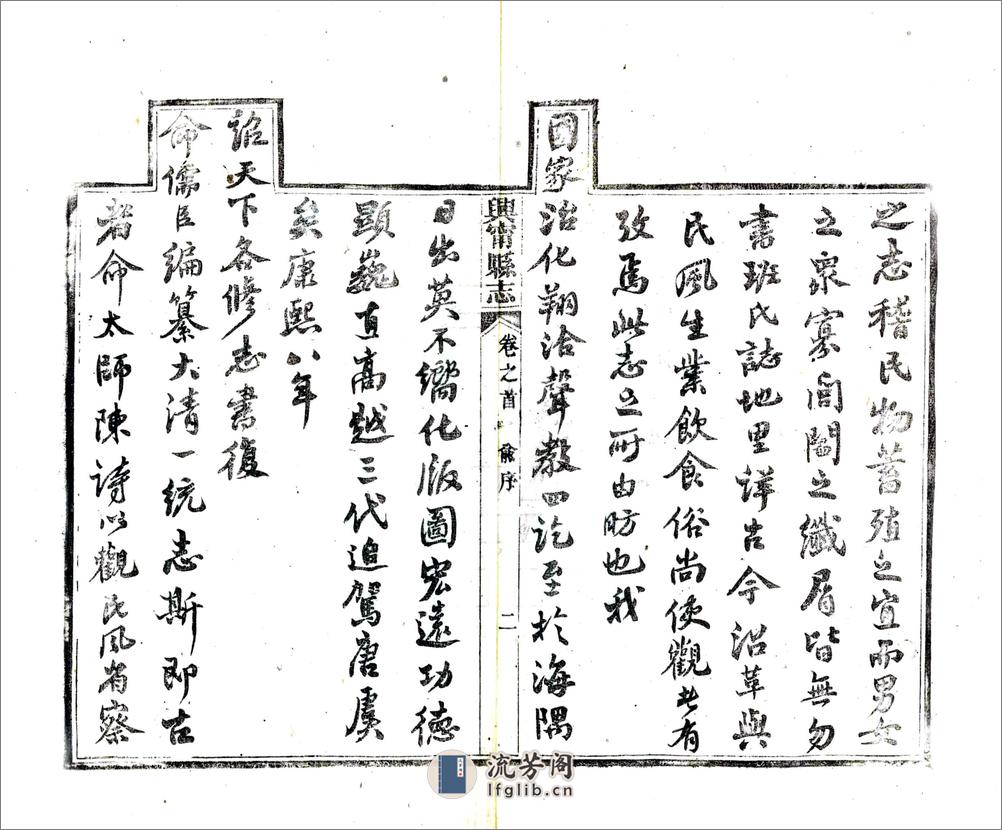 之志稽民物蓄殖之宜而男女
之衆寡閭閻之纖屑皆無勿
書班氏誌地里詳古今沿革與
民風生業飲食俗尚使觀者有
攷焉此志之所由昉也我
國家治化翔洽聲教四訖至於海隅
興甯縣志
卷之首
俞序
二
日出莫不嚮化版圖宏遠功德
顯巍直高越三代追駕唐虞
矣康熙八年
詔天下各修志書復
命儒臣編纂大清一統志斯即古
者命太師陳詩以觀民風省察
流芳阁
lfglib.cn